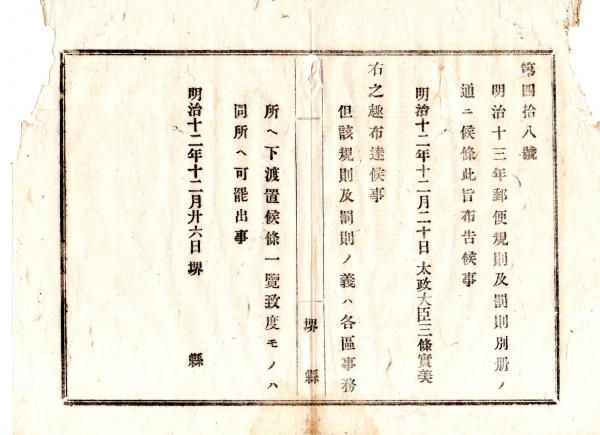 第四拾八號
明治十三年郵便規則及罰則別册ノ
通ニ候條此旨布告候事
明治十二年十二月二十日 太政大臣三條實美
右之趣布達候事
但該規則及罰則ノ義ハ各區事務
堺縣
所ヘ下渡置候條一覽致度モノハ
同所ヘ可罷出事
明治十二年十二月廿六日 堺縣